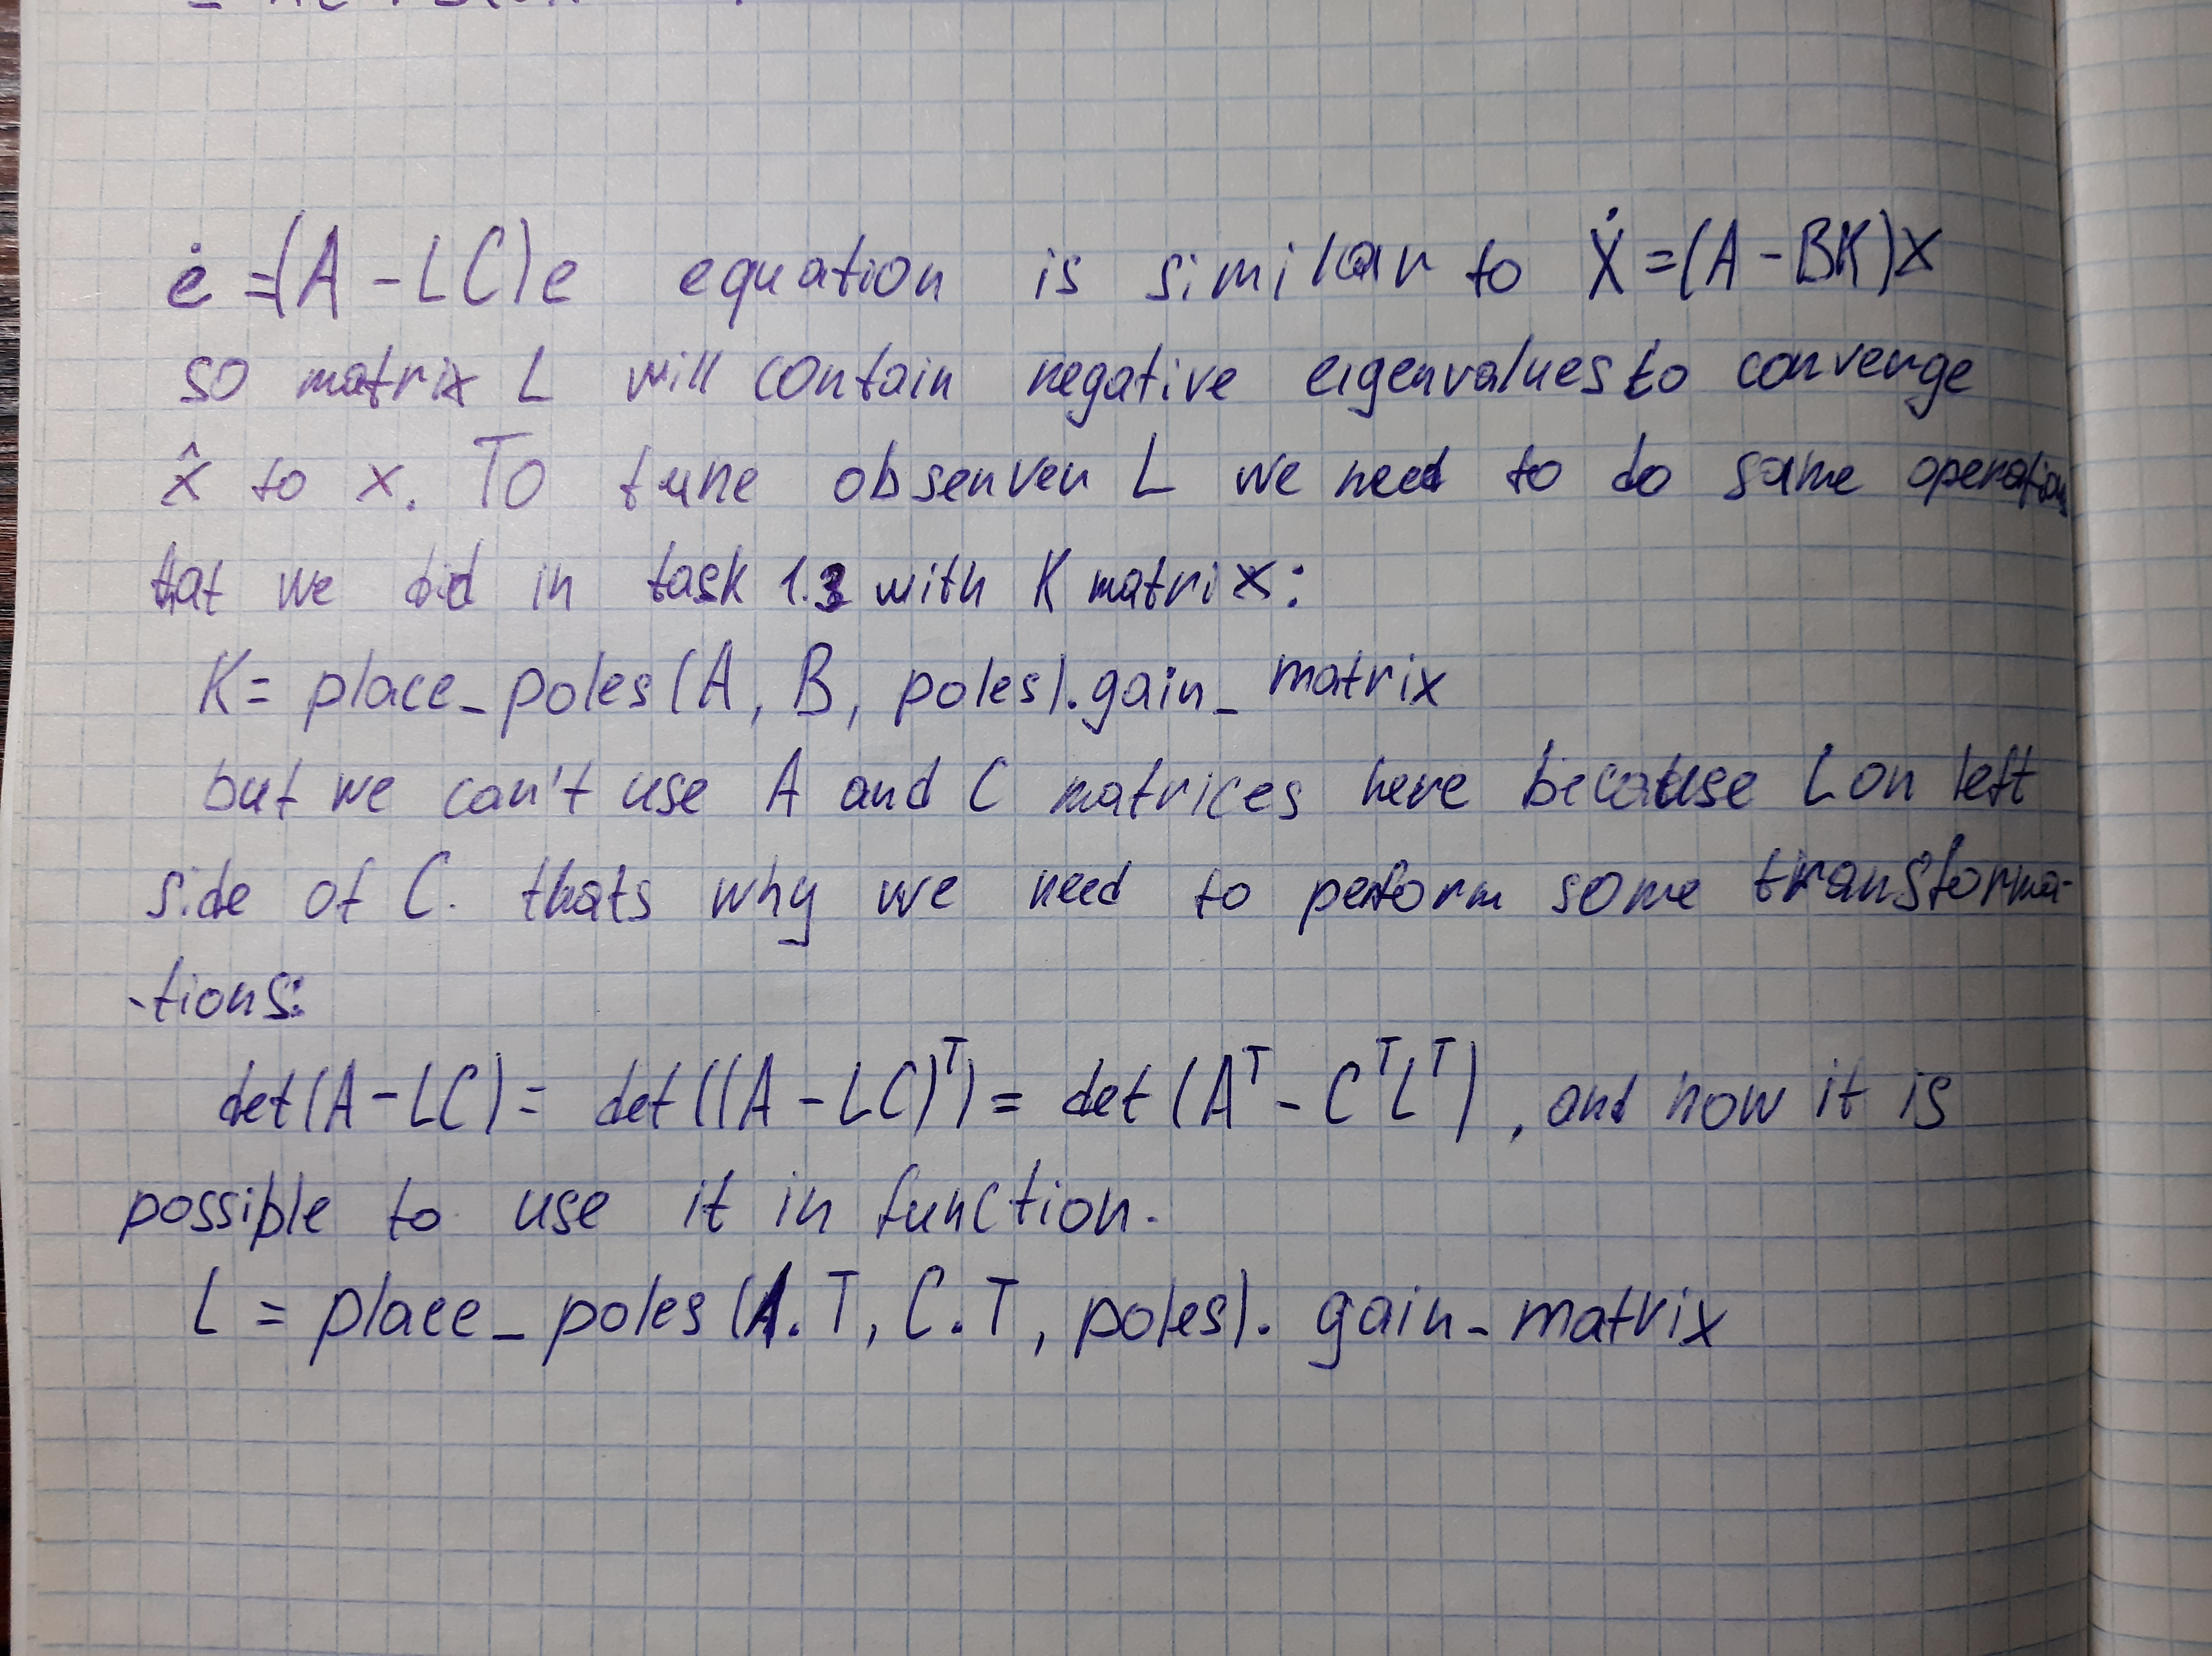 ė = (A - LC)e equation is similar to Ẋ = (A - BK)x
so matrix L will contain negative eigenvalues to converge
x̂ to x. To tune observer L we need to do same operations
that we did in task 1.3 with K matrix:
K = place_poles(A, B, poles).gain_matrix
but we can't use A and C matrices here because L on left
side of C. thats why we need to perform some transforma-
-tions:
det(A - LC) = det((A - LC)ᵀ) = det(Aᵀ - CᵀLᵀ), and now it is
possible to use it in function.
L = place_poles(A.T, C.T, poles).gain_matrix